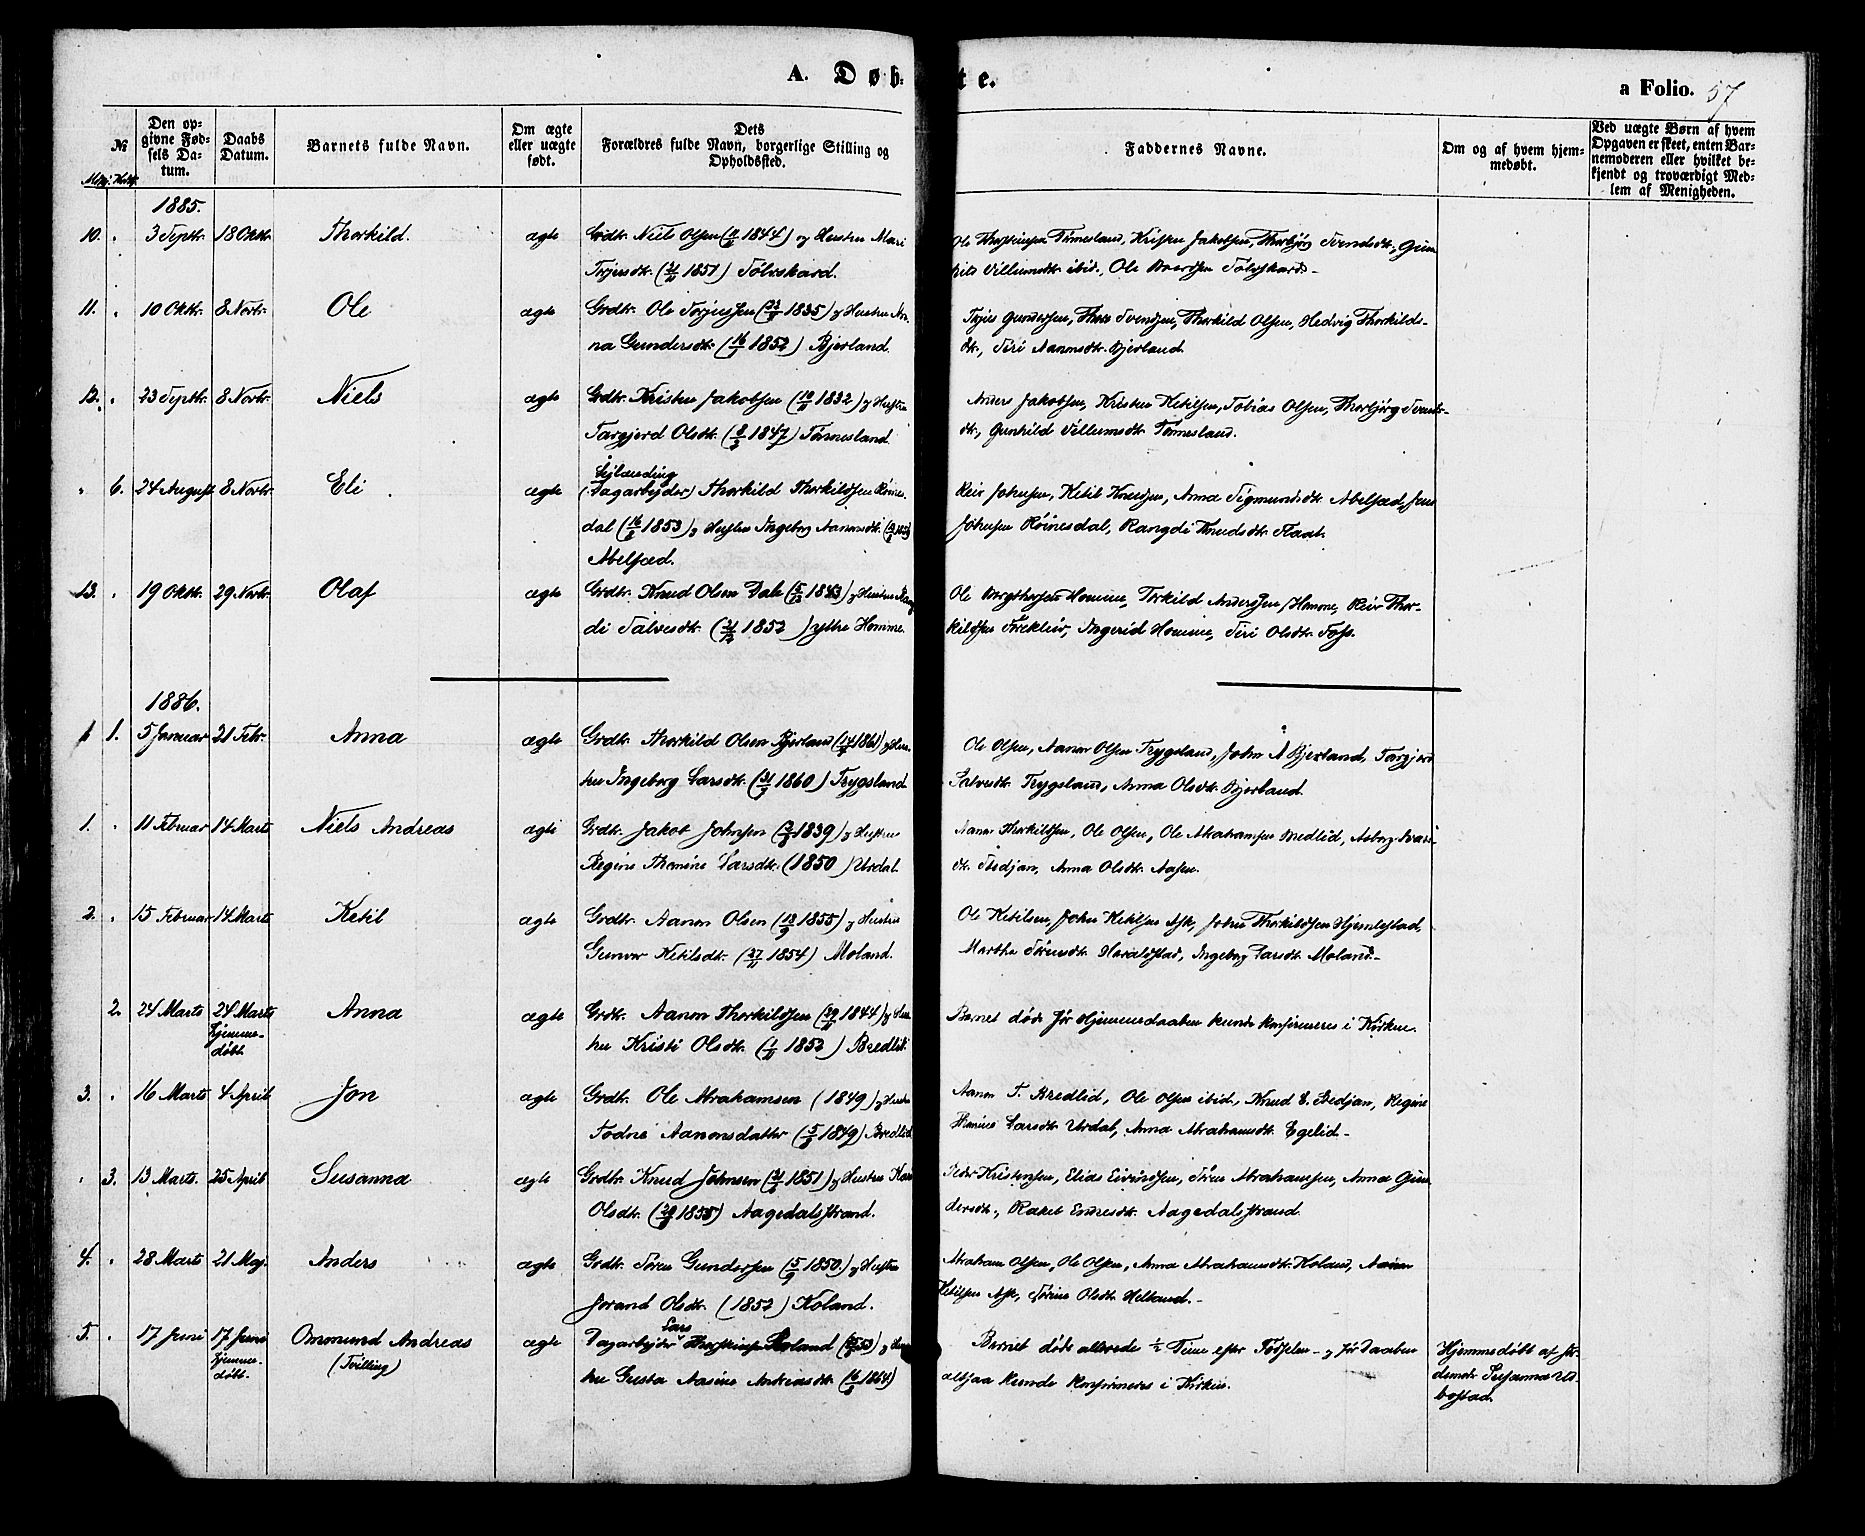 A. Døb- te.
a Folio. 57
№
Mkj. Kvkj.
Den op-
givne Fød-
sels Da-
tum.
Daabs
Datum.
Barnets fulde Navn.
Om ægte
eller uægte
født.
Dets
Forældres fulde Navn, borgerlige Stilling og
Opholdssted.
Faddernes Navne.
Om og af hvem hjem-
medøbt.
Ved uægte Børn af hvem
Opgaven er skeet, enten Bar-
nemoderen eller hvilket be-
kjendt og troværdigt Med-
lem af Menigheden.
1885.
10. 3 Septbr. 18 Oktbr. Thorkild. ægte Grdbr. Niels Olsen 1844) og Hustru Mari
1851)
Ole Tønnesland, Kristen Jakobsen, Thorbjørg Svendsdtr., Gun-
hild Villumsdtr. ibid., Ole
11. 10 Oktbr. 8 Novbr. Ole ægte Grdbr. Ole Torjussen (1835) og Hustru An-
na Gundersdtr. (16 1852) Bjerland.
Gundersen, Svendsen, Thorkild Olsen, Hedvig Thorkilds-
dtr., Siri Aanonsdtr. Bjerland.
12. 23 Septbr. 8 Novbr. Niels ægte Grdbr. Kristen Jakobsen (1832) og Hustru
Targjerd Olsdtr. (1847) Tønnesland
Anders Jakobsen, Kristen Ketilsen, Tobias Olsen, Thorbjørg Svends-
dtr., Gunhild Villumsdtr. Tønnesland.
6. 24 August 8 Novbr. Eli ægte (Dagarbejder) Thorkild Thorkildsen Røines-
dal (16 1853) og Hustru Ingeborg Aanonsdtr.
Abelsæd.
Reier Johnsen, Ketil Knudsen, Anna Sigmundsdtr. Abelsæd, Jens
Johnsen Røinesdal, Rangdi Knudsdtr.
13. 19 Oktbr. 29 Novbr. Olaf ægte Grdbr. Knud Olsen Dale (1843) og Hustru Rang-
di Salvesdtr. (1852) ytre Homme.
Ole Homme, Torkild Andersen Homme, Reier Thor-
kildsen Ingerid Homme, Siri Olsdtr. Foss.
1886.
1. 5 Januar 21 Febr. Anna ægte Grdbr. Thorkild Olsen Bjerland (1861) og Hus-
tru Ingeborg Larsdtr. (1860) Trygsland
Ole Olsen, Aanon Olsen Trygsland, John A Bjerland, Targjerd
Salvesdtr. Trygsland, Anna Olsdtr. Bjerland.
1. 11 Februar 14 Marts Niels Andreas ægte Grdbr. Jakob Johnsen (1839) og Hustru
Regine Thomine Larsdtr. (1850) Urdal.
Aanon Thorkildsen, Ole Olsen, Ole Abrahamsen Bredlid, Asborg
dtr. Stedjan, Anna Olsdtr. Aasen.
2. 15 Februar 14 Marts Ketil ægte Grdbr. Aanon Olsen (18/9 1855) og Hustru
Gunvor Ketilsdtr. (27/11 1854) Moland.
Ole Ketilsen, John Ketilsen Ask, John Thorkildsen Hjemlestad,
Marthe Haraldstad, Ingeborg Larsdtr. Moland.
2. 24 Marts 24 Marts
hjemme-
døbt. Anna ægte Grdbr. Aanon Thorkildsen (29 1844) og Hus-
tru Kristi Olsdtr. (1 1852) Bredlid
Barnet døde før Hjemmedaaben kunde konfirmeres i Kirken.
3. 16 Marts 4 April Jon ægte Grdbr. Ole Abrahamsen (1849) og Hustru
Todne Aanonsdatter (5 1849) Bredlid
Aanon T. Bredlid, Ole Olsen ibid., Knud Stedjan, Regine
Larsdtr. Urdal, Anna Abrahamsdtr. Egelid.
3. 13 Marts. 25 April Susanna ægte Grdbr. Knud Johnsen (1851) og Hustru Kari
Olsdtr. (1855) Aagedalsstrand.
Peder Kristensen, Elias Eivindsen, Søren Abrahamsen, Anna Gun-
dersdtr., Rakel Aagedalsstrand.
4. 28 Marts 21 Maj. Anders ægte Grdbr. Søren Gundersen (5/9 1850.) og Hustru
Jorand Olsdtr. (1852) Koland.
Abraham Olsen, Ole Olsen, Anna Abrahamsdtr. Koland, Aanon
Ketilsen Ask, Olsdtr.
5. 17 Juni 17 Juni
hjemme-
døbt. Ommund Andreas
(Tvilling) ægte Dagarbejder Lars og Hus-
tru Gusta Aasine Andreasdtr. (16 1864)
Barnet døde allerede ½ Time efter Fødselen og før Daaben
altsaa kunde konfirmeres i Kirken.
Hjemmedøbt af Jor-
demoder Susanna Ud-
bostad.